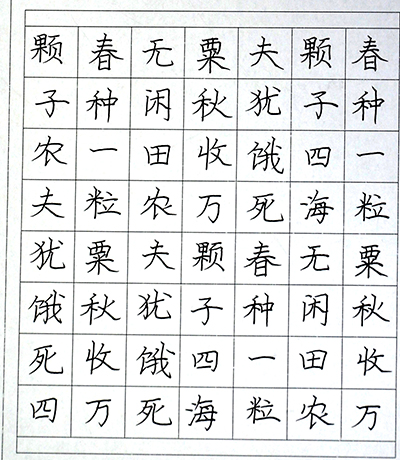 春种一粒粟秋收万
颗子四海无闲田农
夫犹饿死春种一粒
粟秋收万颗子四海
无闲田农夫犹饿死
春种一粒粟秋收万
颗子农夫犹饿死四